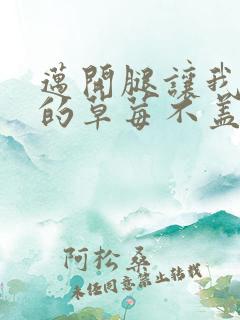 邁開腿讓我
的草莓不盖
阿松桑
未经同意禁止转载